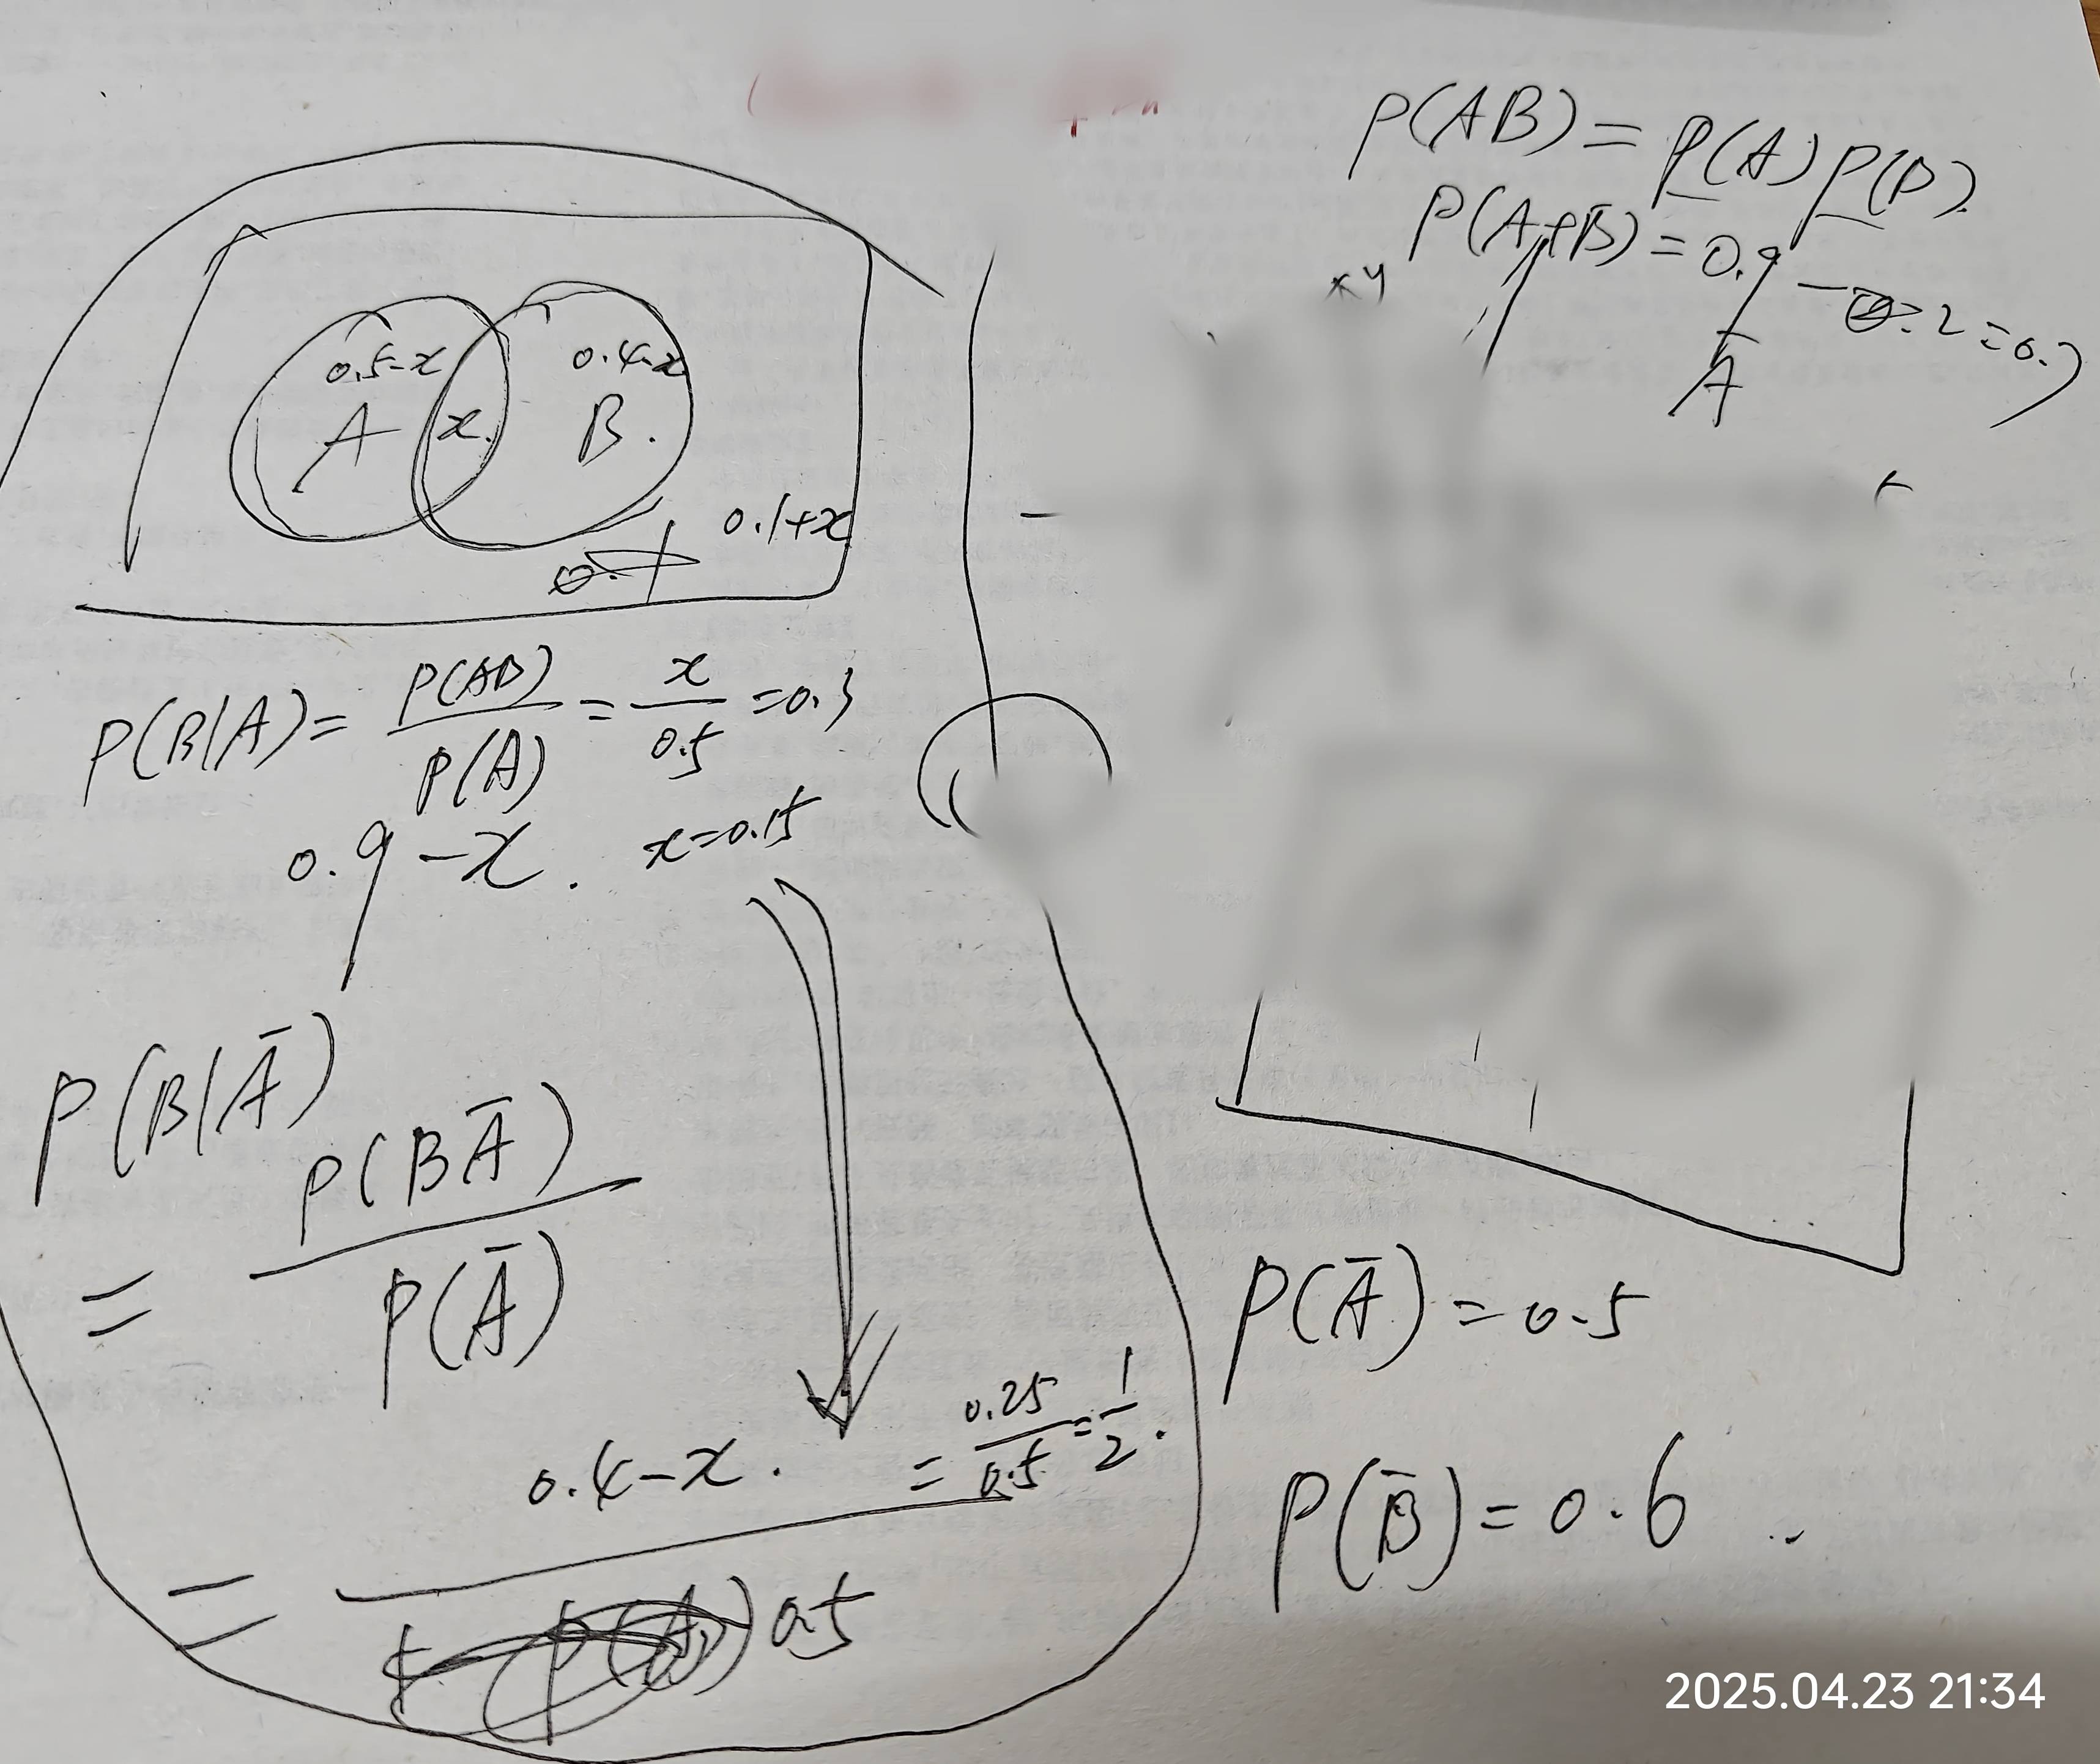 P(AB) = P(A) P(B)
P(A+B) = 0.9 - 0.2 = 0.7
xy
Ā
0.5-x
0.4-x
A
x.
B.
0.1+x
P(B|A) = P(AB) / P(A) = x / 0.5 = 0.3
0.9 - x. x=0.15
P(B|Ā)
= P(BĀ) / P(Ā)
= 0.4-x. / 0.5
= 0.25 / 0.5 = 1 / 2.
P(Ā) = 0.5
P(B̄) = 0.6
2025.04.23 21:34